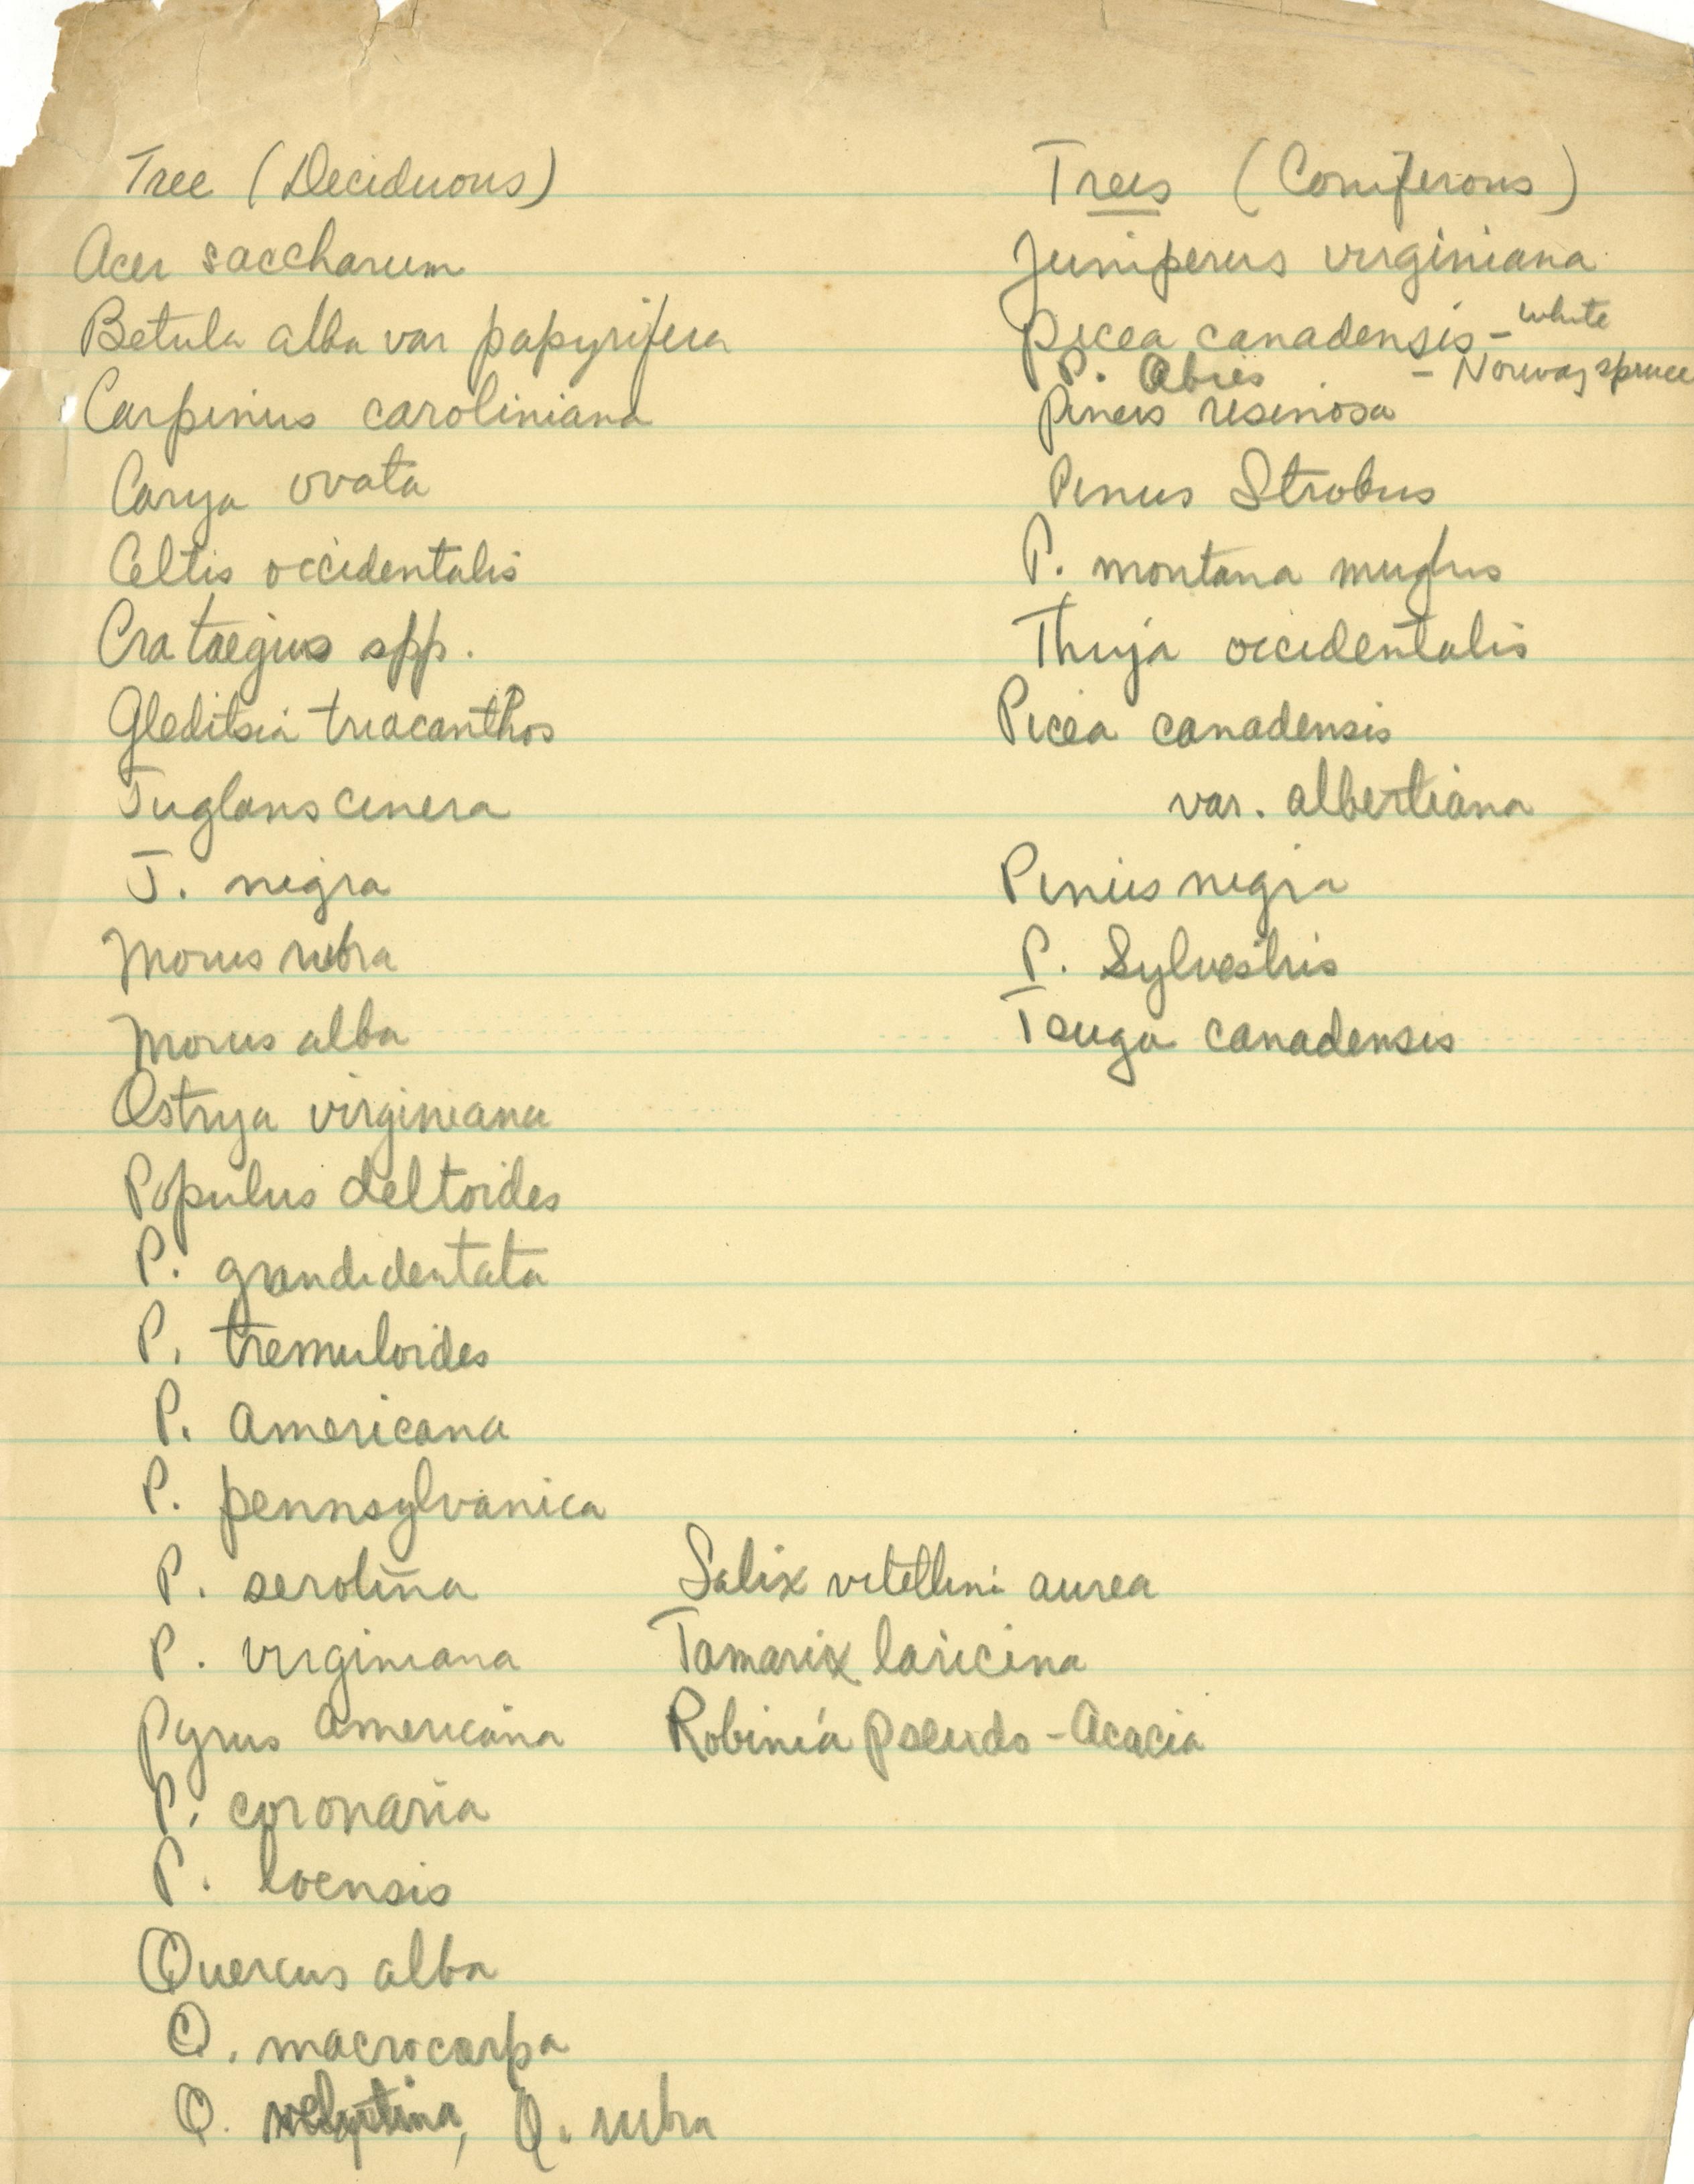 Tree (Deciduous)
Acer saccharum
Betula alba var papyrifera
Carpinus caroliniana
Carya ovata
Celtis occidentalis
Crataegus spp.
Gleditsia triacanthos
Juglans cinera
J. nigra
Morus rubra
Morus alba
Ostrya virginiana
Populus deltoides
P. grandidentata
P. tremuloides
P. americana
P. pennsylvanica
P. serotina
P. virginiana
Pyrus americana
P. coronaria
P. ioensis
Quercus alba
Q. macrocarpa
Q. velutina, Q. rubra
Salix vitellini aurea
Tamarix laricina
Robinia pseudo-Acacia
Trees (Coniferous)
Juniperus virginiana
Picea canadensis - white
P. Abies - Norway spruce
Pinus resinosa
Pinus Strobus
P. montana mughus
Thuja occidentalis
Picea canadensis
var. albertiana
Pinus nigra
P. Sylvestris
Tsuga canadensis